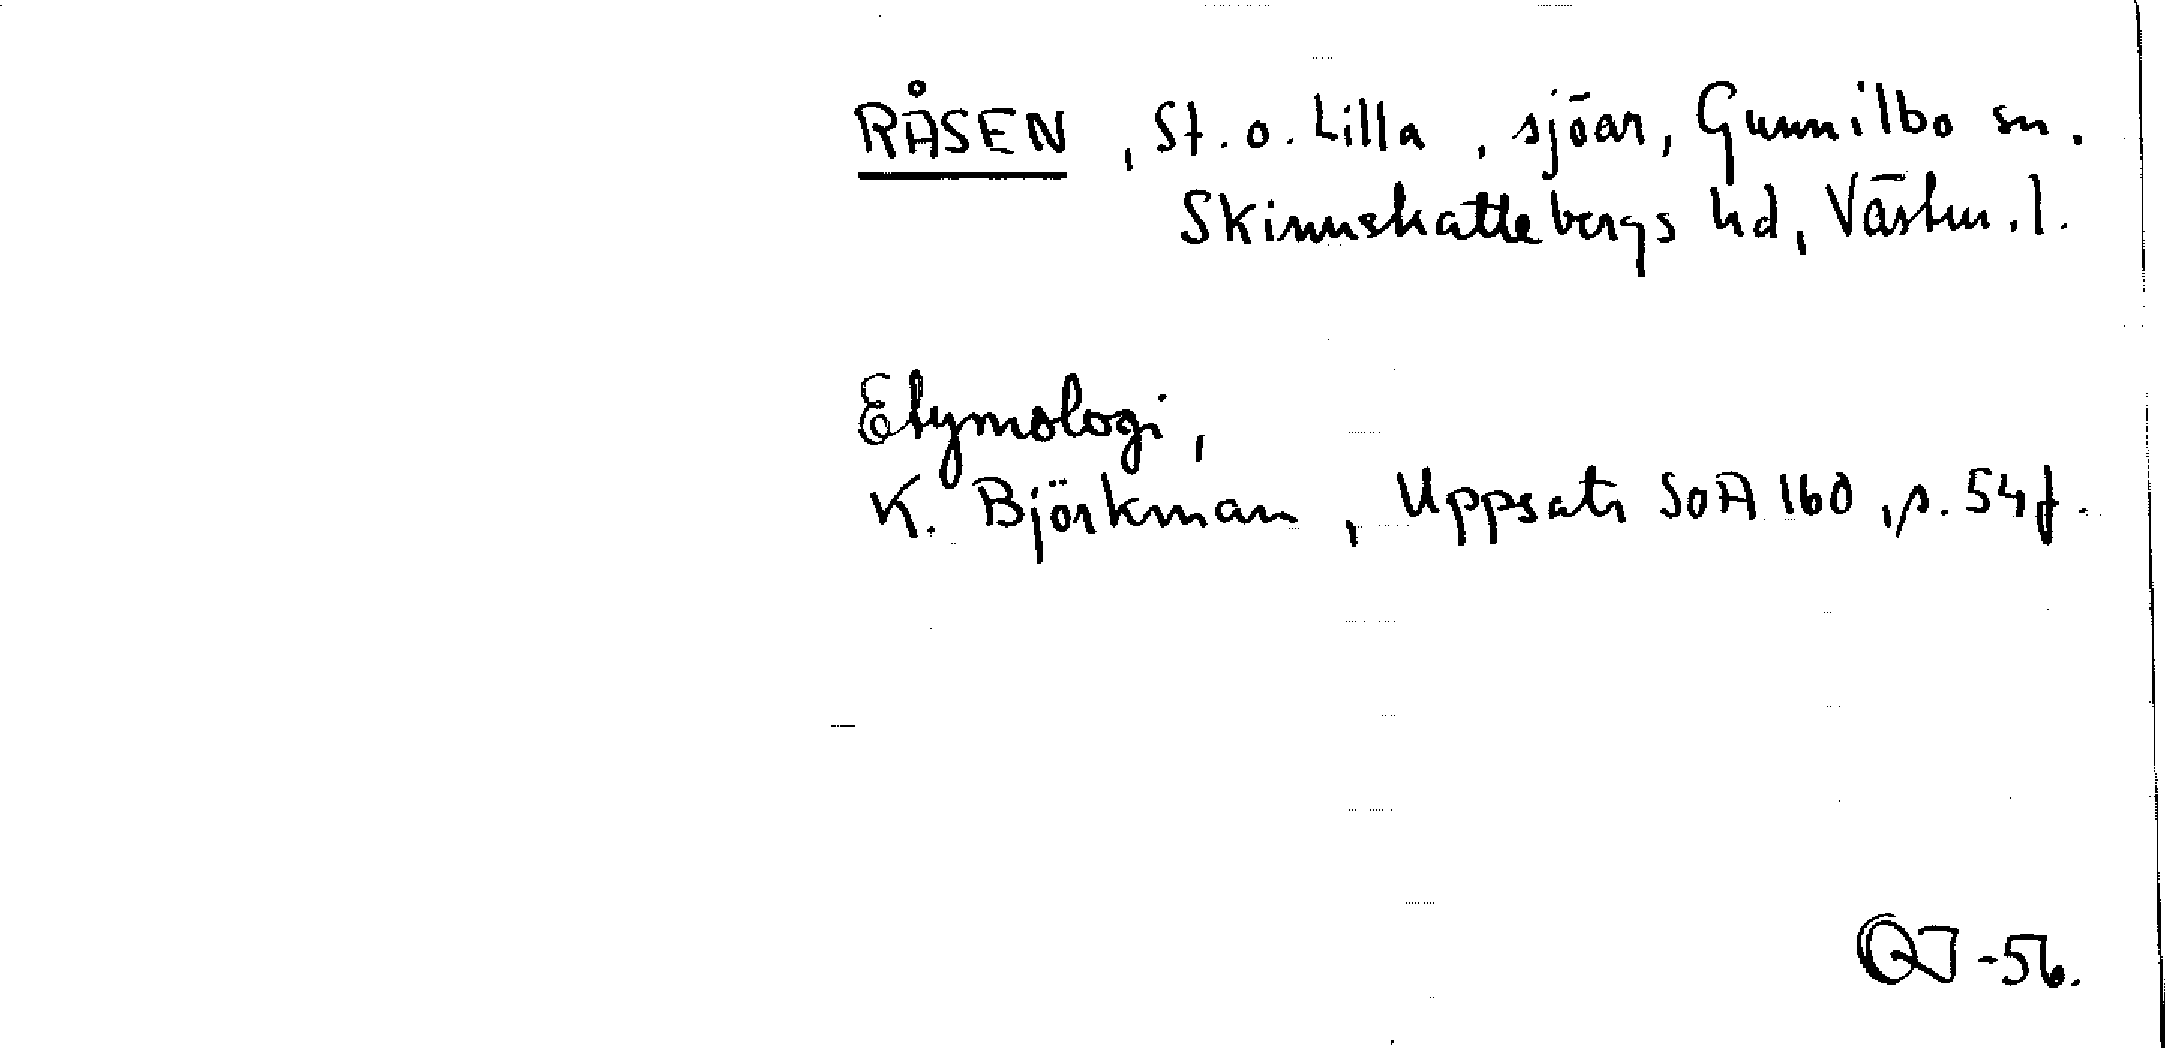 RÅSEN, St. o. Lilla, sjöar, Gunnilbo sn.
Skinnskattebergs hd, Västm. l.
Etymologi,
K. Björkman, Uppsats SOA 160, s. 54 f.
QJ -56.